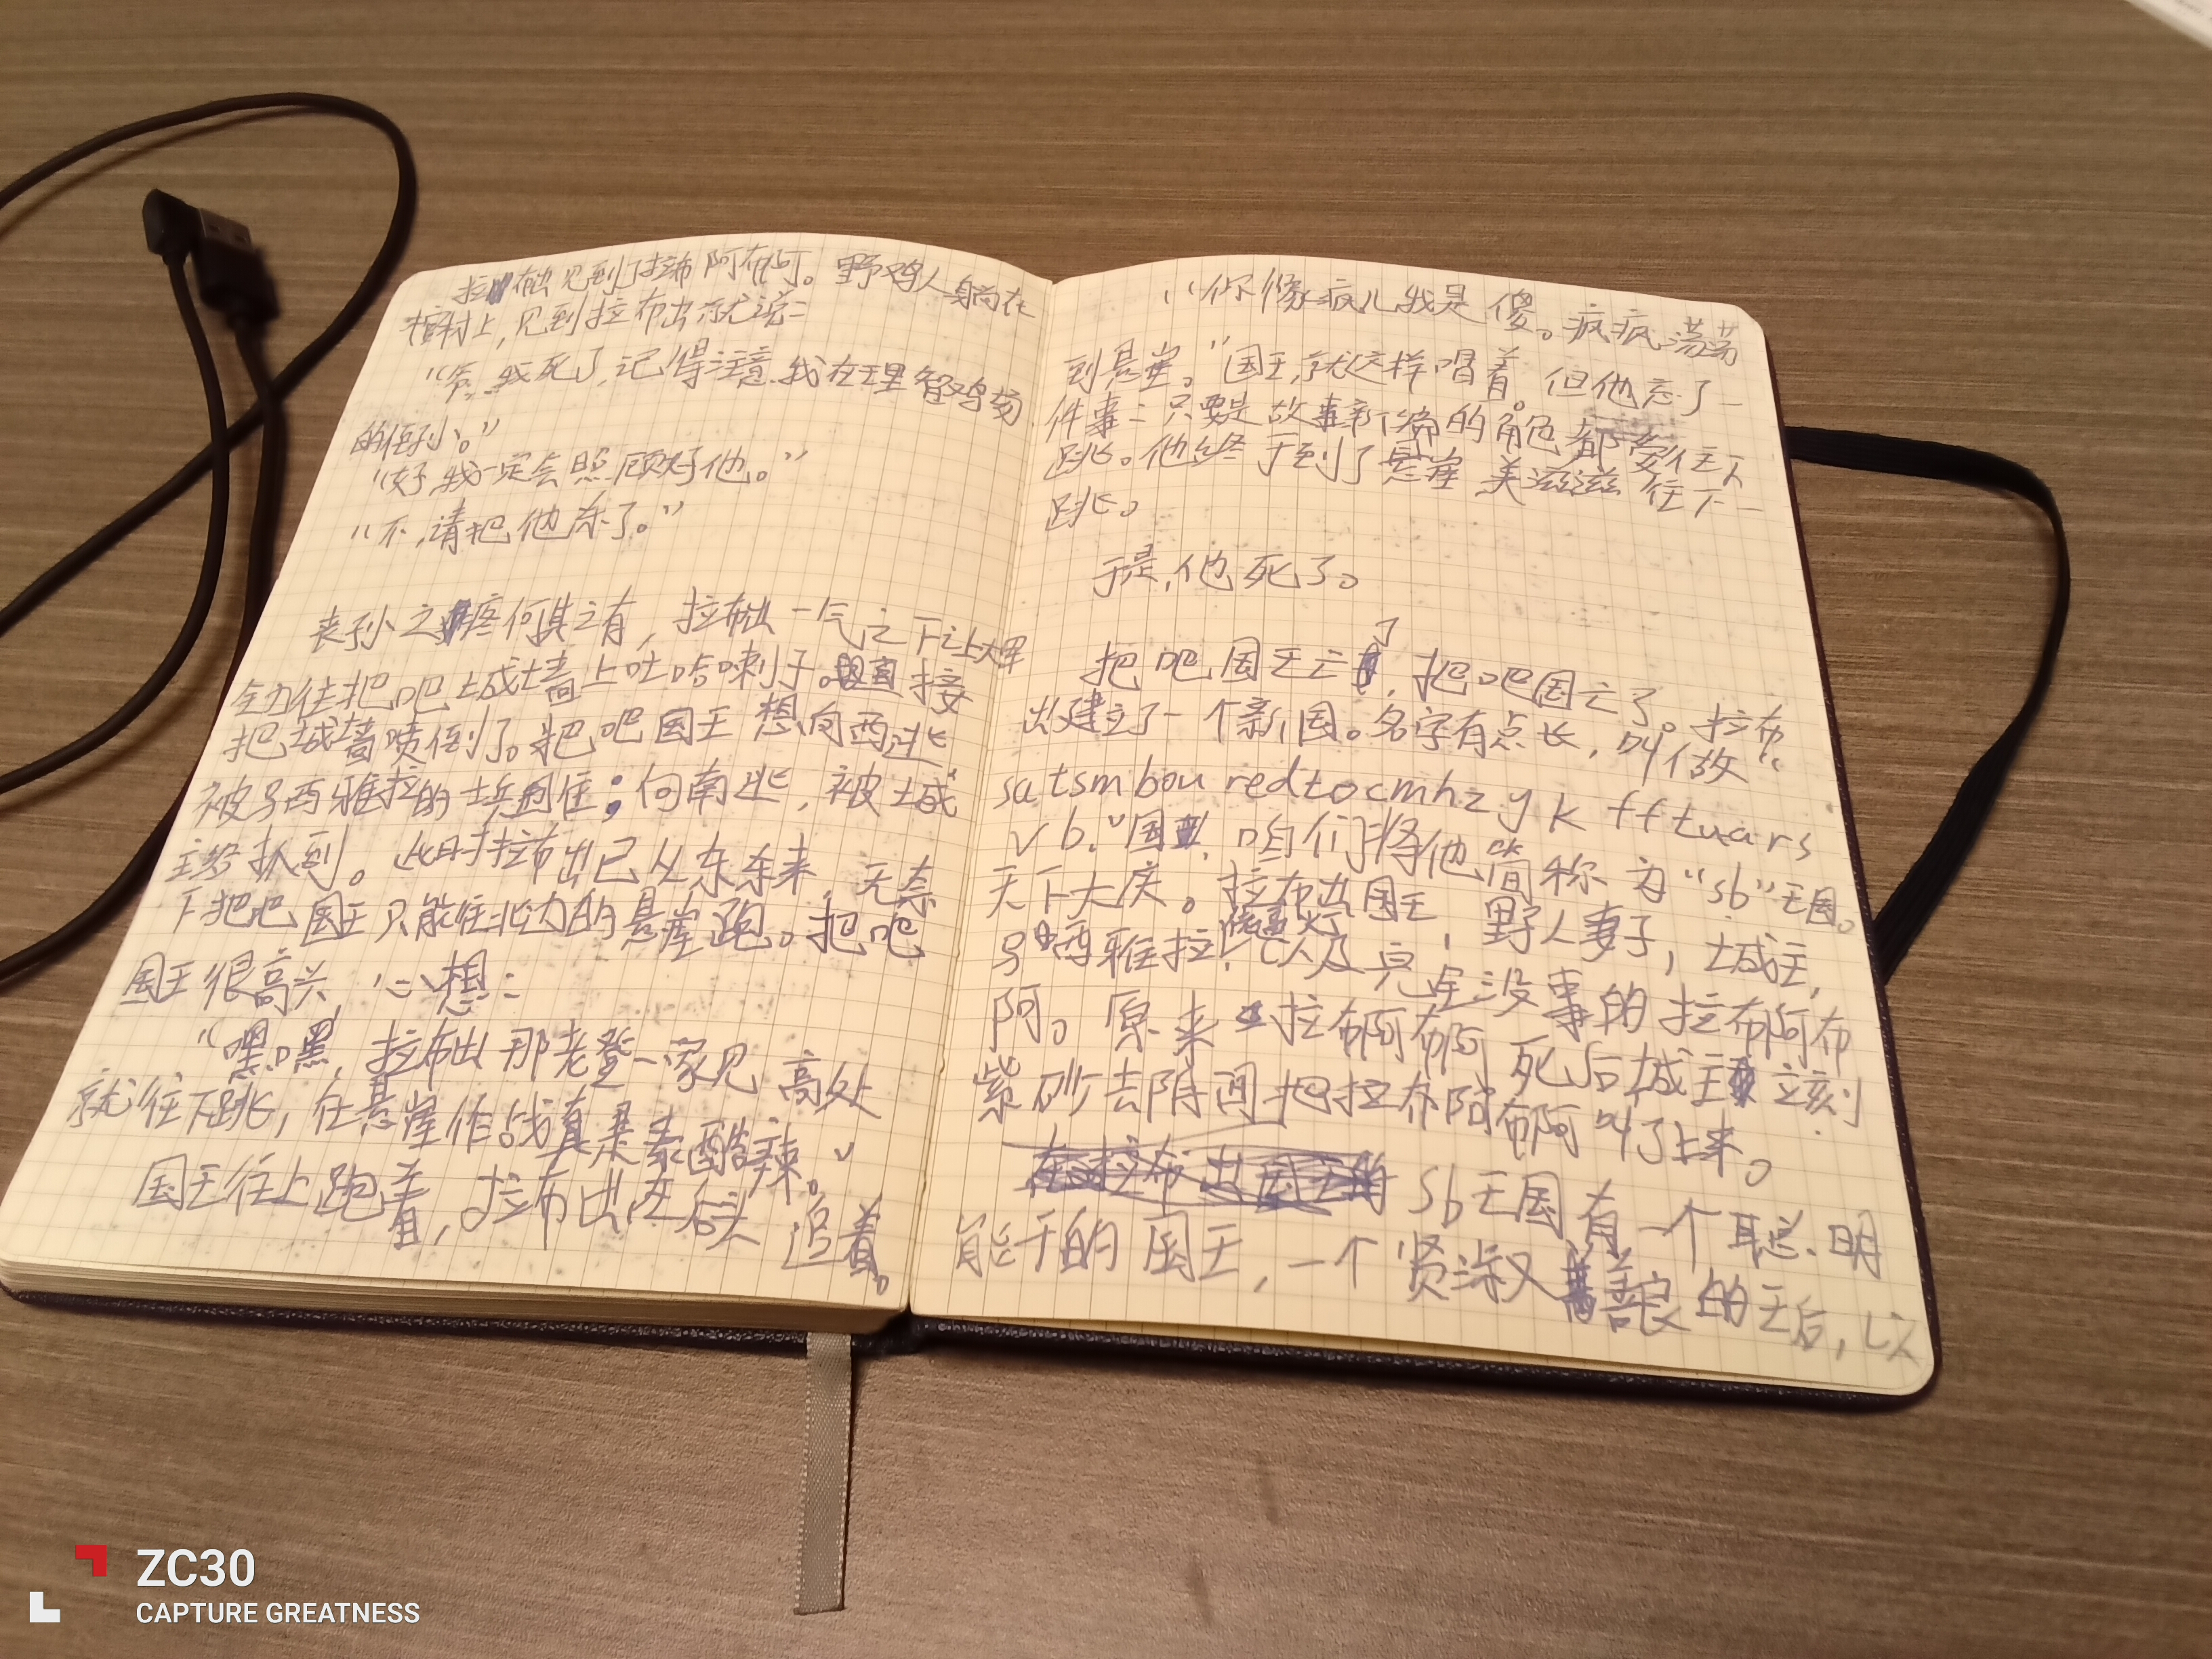 拉布出见到了拉布阿布阿。野鸡人躺在
树上，见到拉布出就说：
“爷，我死了，记得注意我在王里智鸡场
的侄孙。”
“好，我一定会照顾好他。”
“不，请把他杀了。”
丧孙之疼何其之有，拉布出一气之下让大军
全力往把吧城墙上吐哈喇子。直接
把城墙喷倒了。把吧国王想向西逃
被号西雅拉的士兵围住；向南逃，被城
主爷抓到。此时拉布出已从东东来，无奈
下把吧国王只能往北边的悬崖跑。把吧
国王很高兴，心想：
“嘿嘿，拉布出那老登一家见高处
就往下跳，在悬崖作战真是泰酷辣。”
国王往上跑着，拉布出在后头追着。
“你像疯儿我是傻。疯疯荡荡
到悬崖。”国王就这样唱着。但他忘了一
件事：只要是故事新编的角色都要往下
跳。他终于到了悬崖美滋滋往下一
跳。
于是，他死了。
把吧国王亡了，把吧国亡了。拉布
出建立了一个新国。名字有点长，叫做“
satsmbouredtocmhzykfftuars
vb.”国，咱们将他简称为“sb”王国。
天下大庆。拉布出国王，野人妻子，城主，
号西雅拉，以及完全没事的拉布阿布
阿。原来拉布阿布阿死后城主立刻
紫砂去阴间把拉布阿布阿叫了上来。
sb王国有一个聪明
能干的国王，一个贤淑善良的王后，以
ZC30
CAPTURE GREATNESS